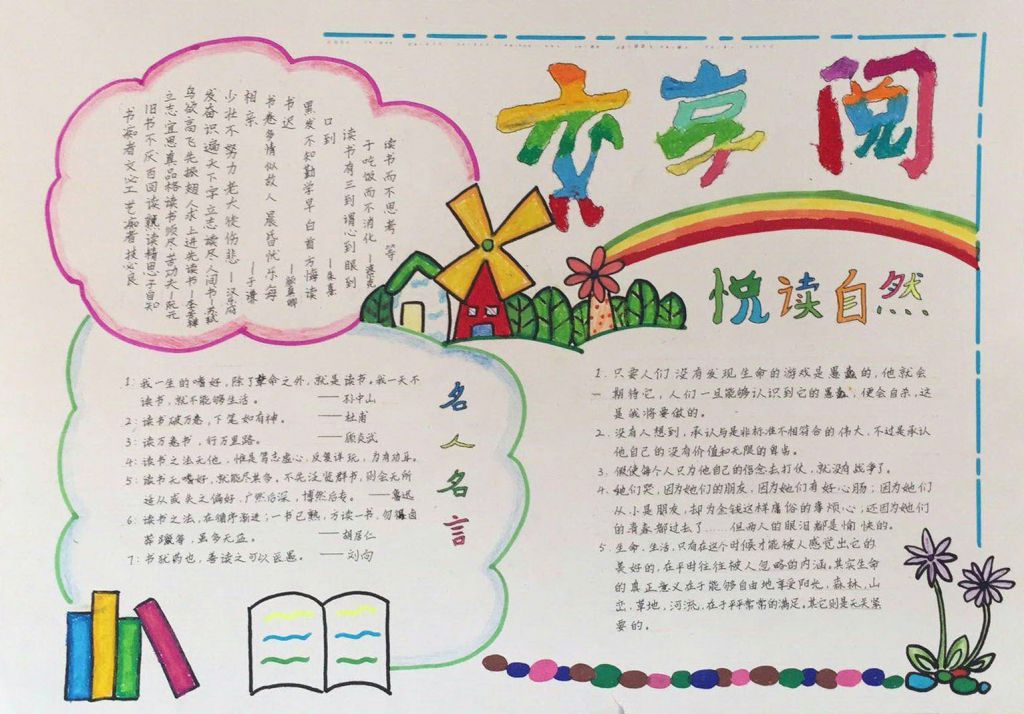 亦享阅
悦读自然
读书而不思考 等
于吃饭而不消化
读书有三到谓心到眼到
口到 —朱熹
黑发不知勤学早 白首方悔读
书迟 —颜真卿
书卷多情似故人 晨昏忧乐每
相亲 —于谦
少壮不努力老大徒伤悲 —汉乐府
发奋识遍天下字立志读尽人间书—苏轼
鸟欲高飞先振翅人求上进先读书—李苦禅
立志宜思真品格读书须尽苦功夫—阮元
旧书不厌百回读熟读精思子自知
书痴者文必工 艺痴者技必良
名人名言
1: 我一生的嗜好，除了革命之外，就是读书。我一天不
读书，就不能够生活。 ——孙中山
2: 读书破万卷，下笔如有神。 ——杜甫
3: 读万卷书，行万里路。 ——顾炎武
4: 读书之法无他，惟是笃志虚心，反复详玩，为有功耳。
5: 读书无嗜好，就能尽其多。不先泛览群书，则会无所
适从或失之偏好，广然后深，博然后专。 ——鲁迅
6: 读书之法，在循序渐进；一书已熟，方读一书，勿得卤
莽躐等，虽多无益。 ——胡居仁
7: 书犹药也，善读之可以医愚。 ——刘向
1. 只要人们没有发现生命的游戏是愚蠢的，他就会
期待它，人们一旦能够认识到它的愚蠢，便会自杀，这
是我将要做的。
2. 没有人想到，承认与是非标准不相符合的伟大，不过是承认
他自己的没有价值和无限的卑劣。
3. 假使每个人只为他自己的信念去打仗，就没有战争了。
4. 她们哭，因为她们的朋友，因为她们有好心肠；因为她们
从小是朋友，却为金钱这样庸俗的事烦心，还因为她们
的青春都过去了……但两人的眼泪都是愉快的。
5. 生命，生活，只有在这个时候才能被人感觉出它的
美好的，在平时往往被人忽略的内涵。其实生命
的真正意义在于能够自由地享受阳光，森林，山
峦，草地，河流，在于平平常常的满足。其它则是无关紧
要的。